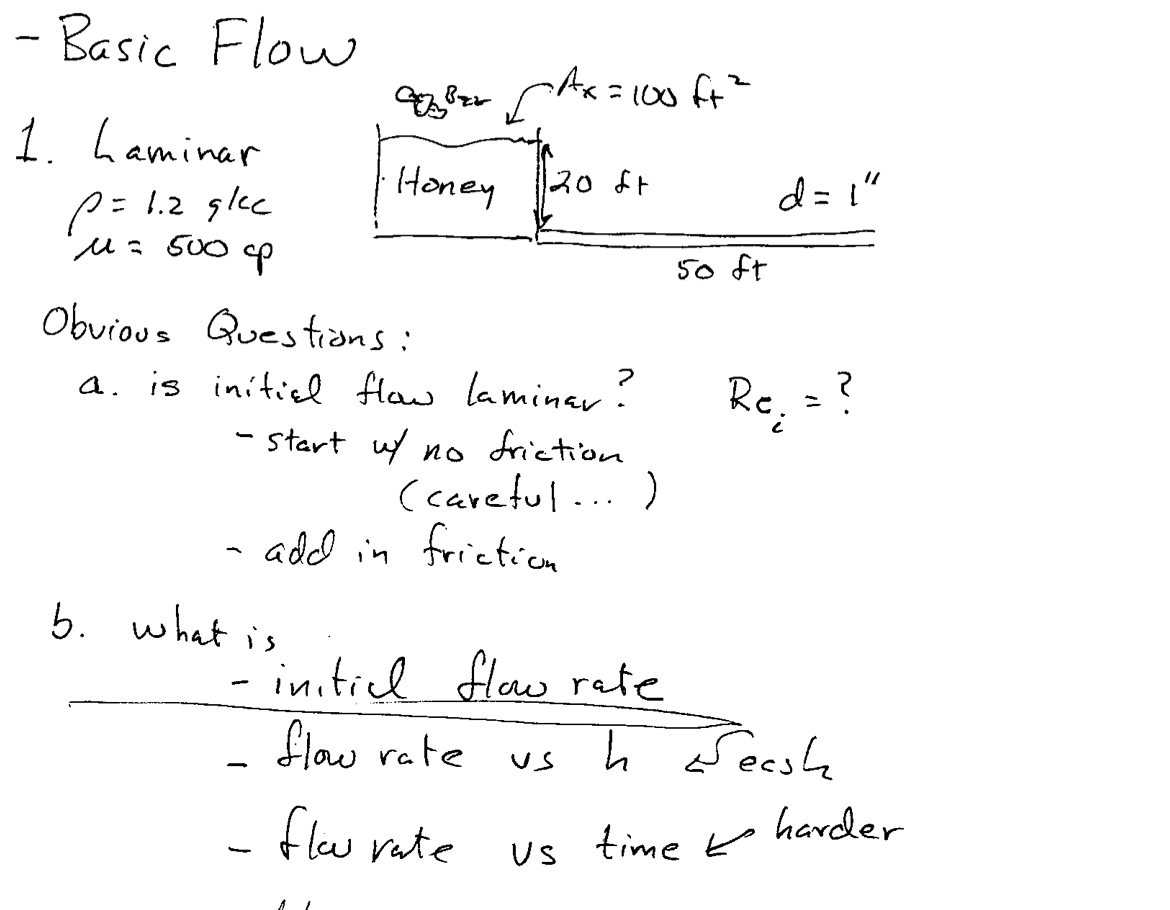 - Basic Flow
Bee
Ax = 100 ft²
1. Laminar
Honey
20 ft
d = 1"
ρ = 1.2 g/cc
μ = 500 cp
50 ft
Obvious Questions:
a. is initial flow laminar? Reᵢ = ?
- start w/ no friction
(careful ... )
- add in friction
b. what is
- initial flow rate
- flow rate vs h
- flow rate vs time ← harder